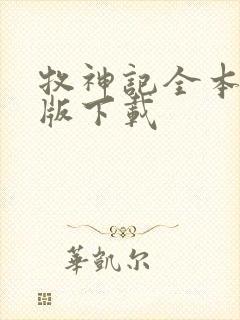 牧神記全本
版下載
華凱尔